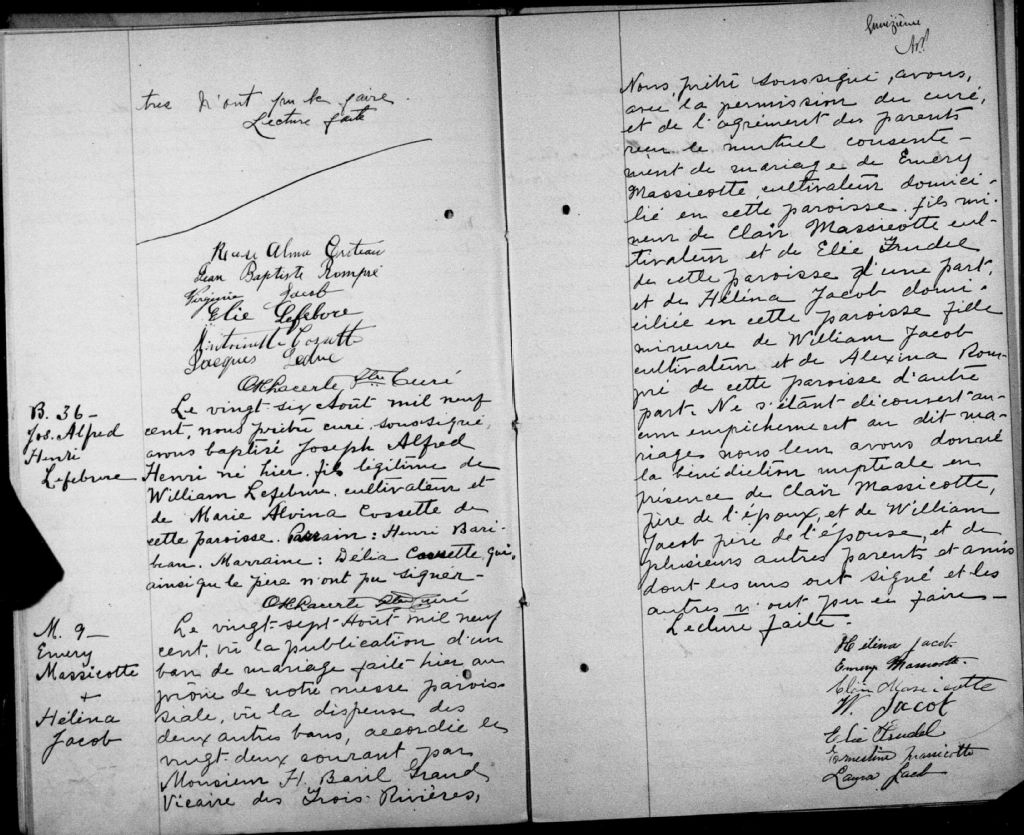 tres n'ont pu le faire.
Lecture faite
Rose Alma
Jean Baptiste Rompré
Virginie Jacob
Elie Lefebvre
Jacques Leduc
Ptre Curé
B. 36 —
Jos. Alfred
Henri
Lefebvre
Le vingt-six Août mil neuf
cent, nous prêtre curé soussigné,
avons baptisé Joseph Alfred
Henri né hier, fils légitime de
William Lefebvre, cultivateur et
de Marie Alvina Cossette de
cette paroisse. Parrain : Henri Bari-
beau. Marraine : Délia Cossette qui,
ainsi que le père n'ont pu signer —
Ptre Curé
M. 9 —
Emery
Massicotte
+
Hélina
Jacob
Le vingt-sept Août mil neuf
cent, vu la publication d'un
ban de mariage faite hier au
prône de notre messe parois-
siale, vu la dispense des
deux autres bans, accordée le
vingt-deux courant par
Monsieur H. Baril Grand
Vicaire des Trois-Rivières,
Nous, prêtre soussigné, avons,
avec la permission du curé,
et de l'agrément des parents
reçu le mutuel consente-
ment de mariage de Emery
Massicotte, cultivateur domici-
lié en cette paroisse, fils mi-
neur de Clair Massicotte cul-
tivateur et de Elie Trudel
de cette paroisse d'une part,
et de Hélina Jacob domi-
ciliée en cette paroisse fille
mineure de William Jacob
cultivateur et de Alexina Rom-
pré de cette paroisse d'autre
part. Ne s'étant découvert au-
cun empêchement au dit ma-
riage nous leur avons donné
la bénédiction nuptiale en
présence de Clair Massicotte,
père de l'époux, et de William
Jacob père de l'épouse, et de
plusieurs autres parents et amis
dont les uns ont signé et les
autres n'ont pu le faire —
Lecture faite.
Hélina Jacob
Emery Massicotte
Clair Massicotte
W. Jacob
Elie Trudel
Ernestine Massicotte
Laura Jacob